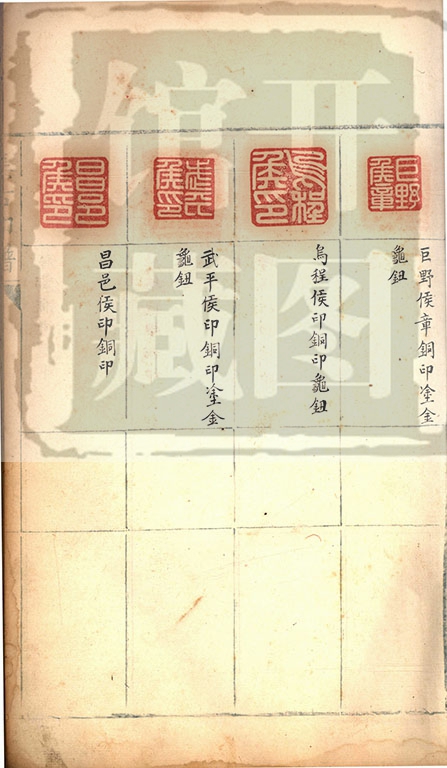 巨野侯章
巨野侯章銅印塗金
龜鈕
烏程侯印
烏程侯印銅印龜鈕
武平侯印
武平侯印銅印塗金
龜鈕
昌邑侯印
昌邑侯印銅印
开图
馆藏